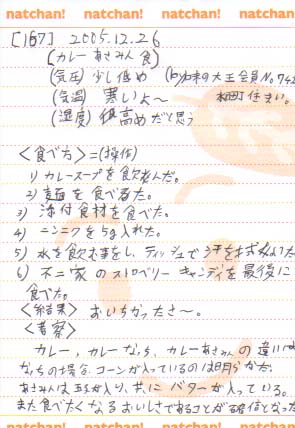 natchan! natchan! natchan! natchan!
[157] 2005.12.26
[カレーあさみん食]
(気圧) 少し低め (向来の大王会員No.742
(気温) 寒いよ～ 本町住まい。
(湿度) 彳高めだと思う
<食べ方>=(操作)
1) カレースープを飲んだ。
2) 麺を食べた。
3) 添付食材を食べた。
4) ニンニクを5g入れた。
5) 水を飲む事をし、ティッシュで汗を拭
6) 不二家のストロベリーキャンディを最後に
食べた。
<結果> おいちかったさ～。
<考察>
カレー,カレーなっち,カレーあさみんの違いは
なっちの場合コーンが入っているのは明らか。
あさみんは玉ネが入り、共にバターが入っている。
また食べたくなるおいしさであることが確信となった
natchan! natchan! natchan! natchan!